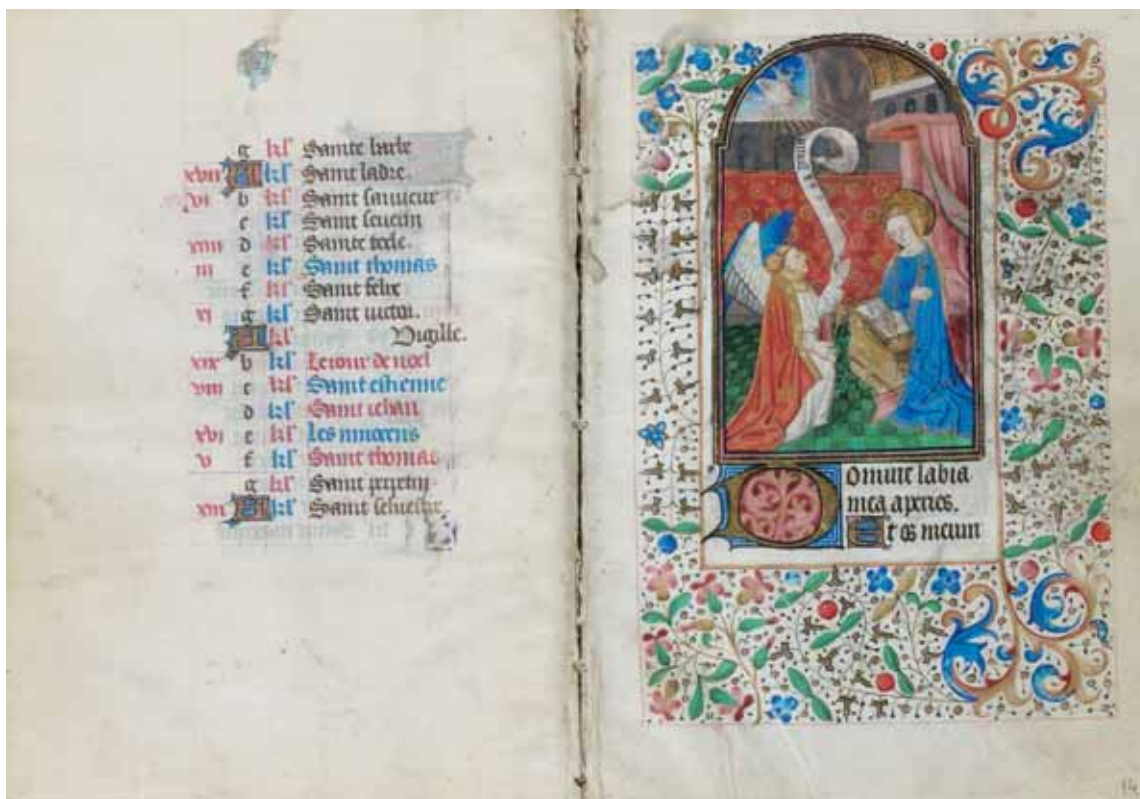 g kl' Sainte barbe
xvii A kl' Saint ladre.
vi b kl' Saint sauueur
c kl' Saint seuerin
xiiii d kl' Sainte tecle.
iii e kl' Saint thomas
f kl' Saint felix
xi g kl' Saint uictor.
A kl' Vigille.
xix b kl' Le iour de noel
viii c kl' Saint estienne
d kl' Saint iehan
xvi e kl' Les innocens
v f kl' Saint thomas
g kl' Saint
xiii A kl' Saint seluestre
Domine labia
mea aperies.
Et os meum
14